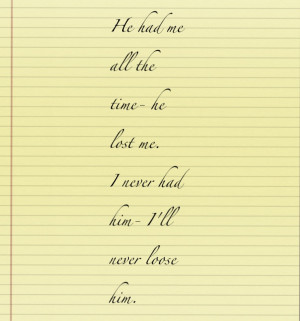 He had me
all the
time- he
lost me.
I never had
him- I'll
never loose
him.